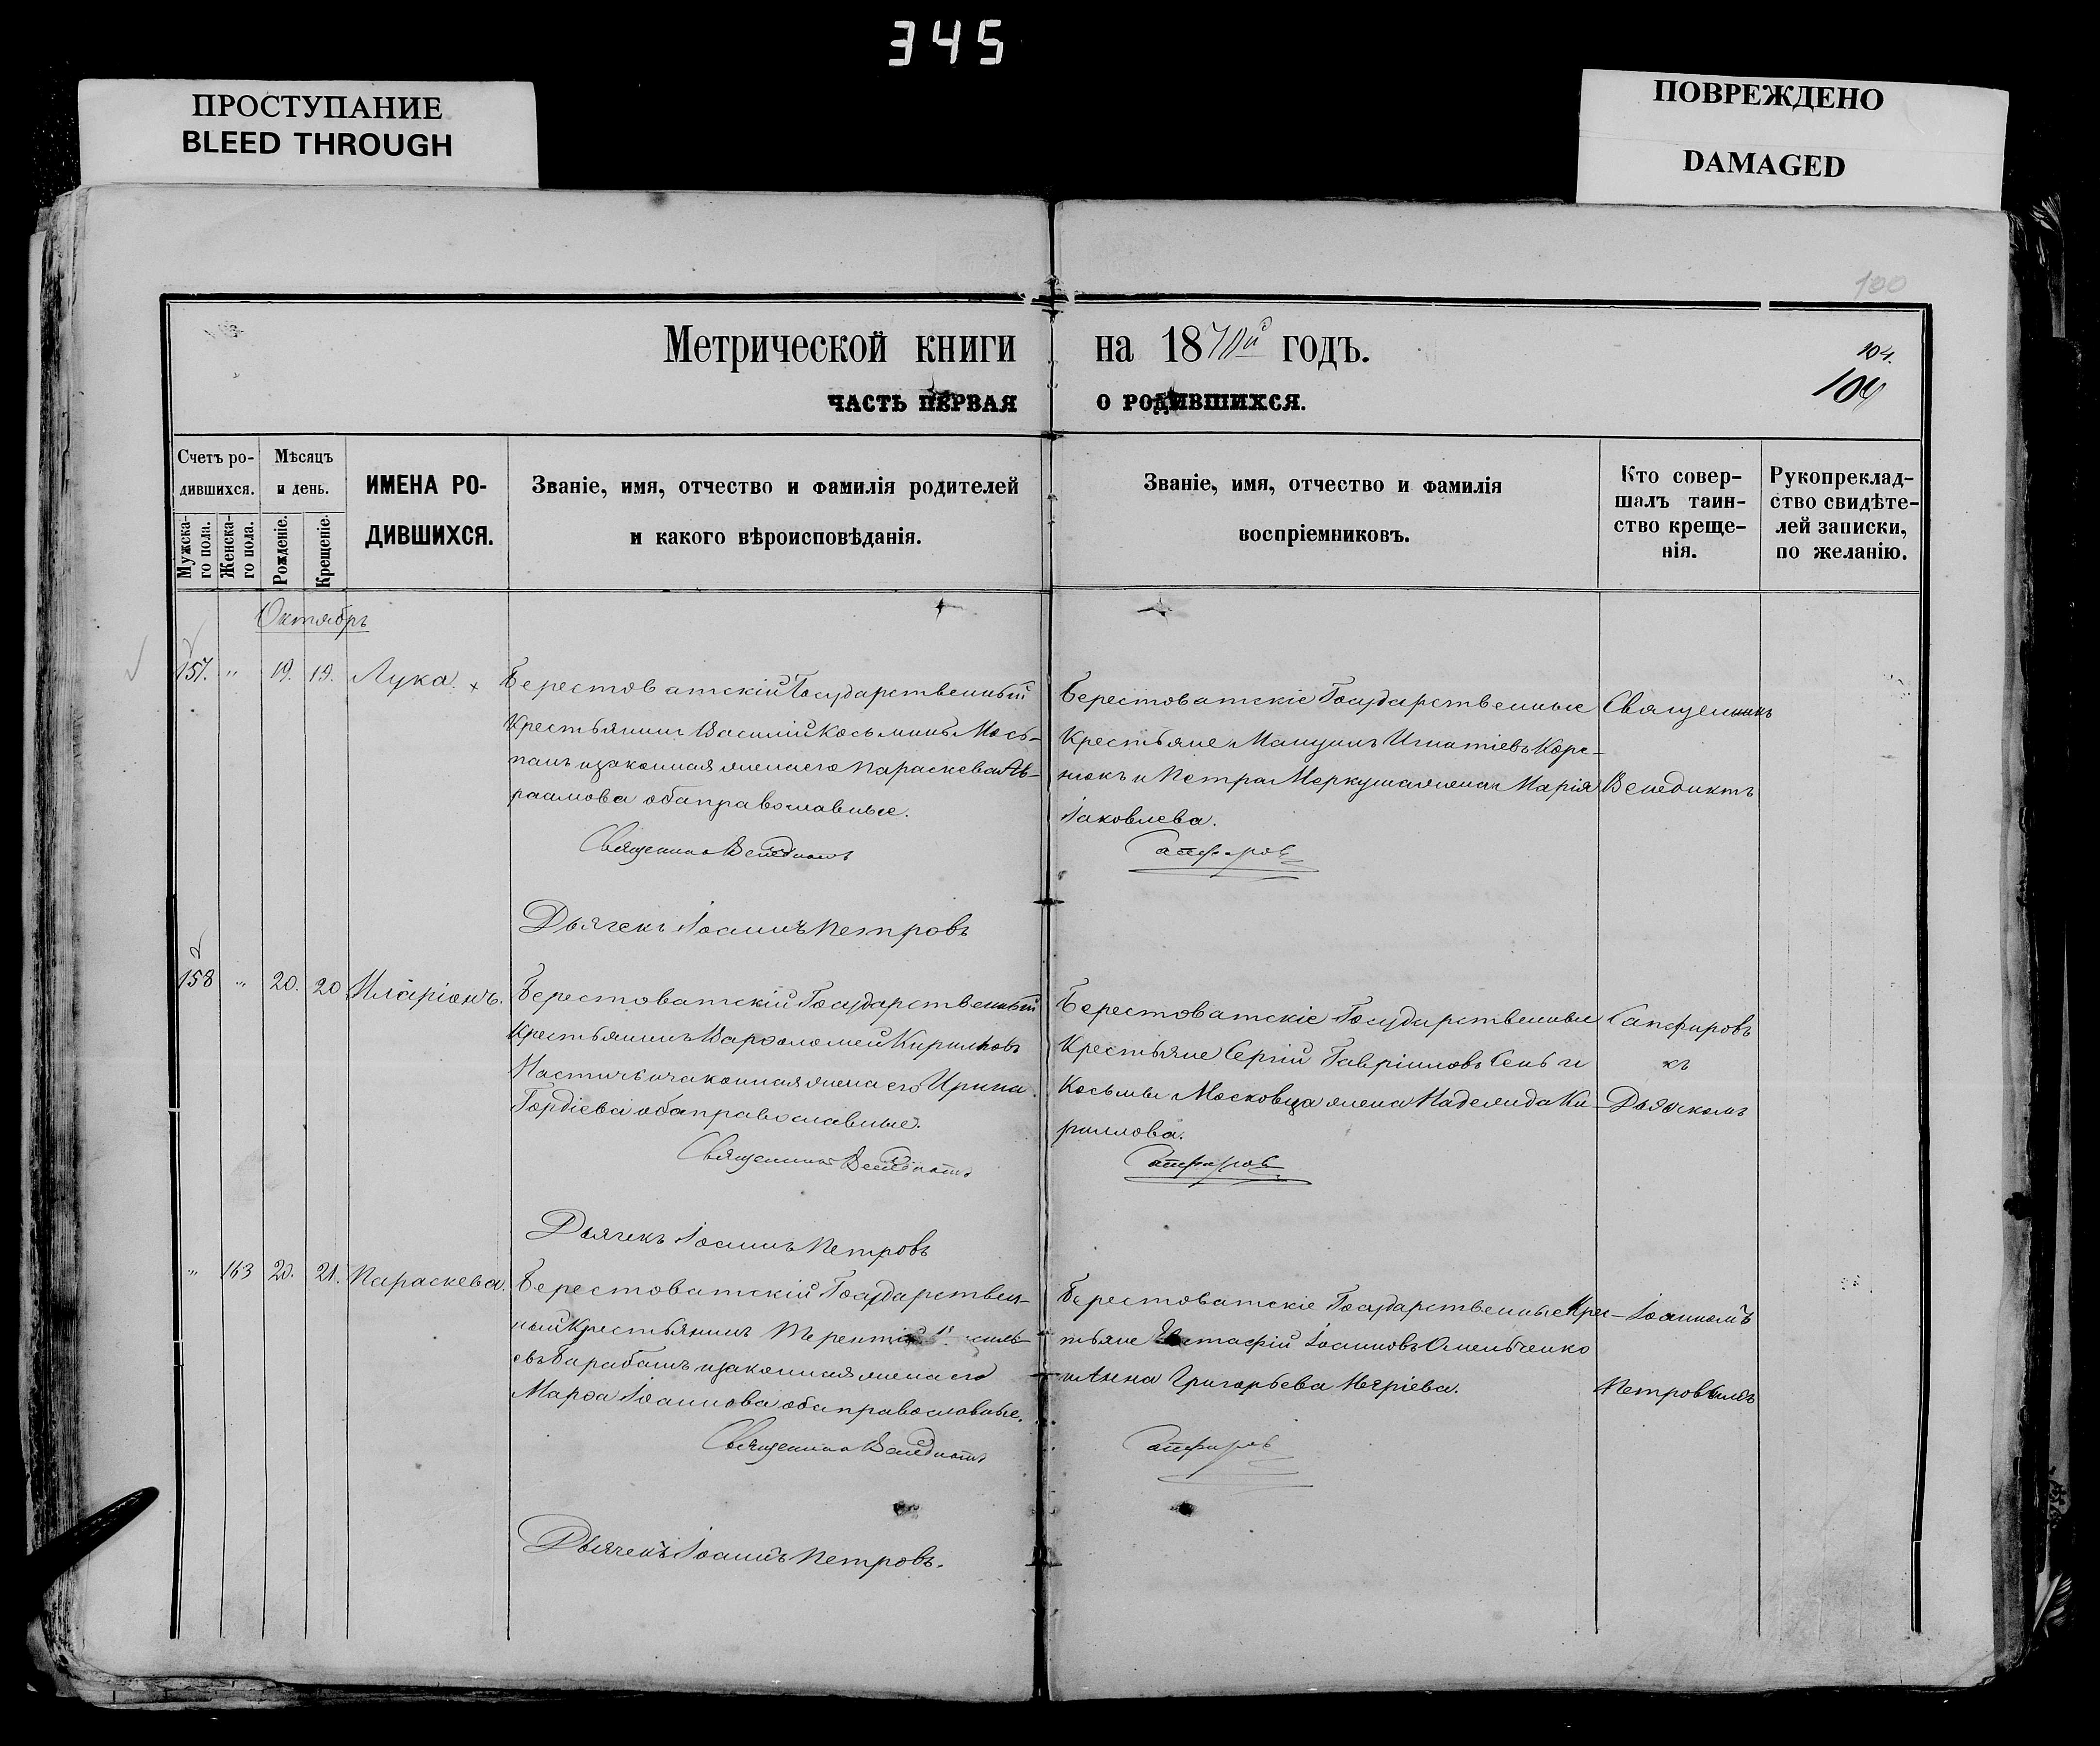 345
ПРОСТУПАНИЕ
BLEED THROUGH
ПОВРЕЖДЕНО
DAMAGED
100
Метрической книги на 1870й годъ.
104.
104
ЧАСТЬ ПЕРВАЯ О РОДИВШИХСЯ.
Счетъ ро-
дившихся.
Мужска-
го пола.
Женска-
го пола.
Мѣсяцъ
и день.
Рожденіе.
Крещеніе.
ИМЕНА РО-
ДИВШИХСЯ.
Званіе, имя, отчество и фамилія родителей
и какого вѣроисповѣданія.
Званіе, имя, отчество и фамилія
воспріемниковъ.
Кто совер-
шалъ таин-
ство креще-
нія.
Рукоприклад-
ство свидѣте-
лей записки,
по желанію.
Октябрь
157. " 19. 19. Лука.
Берестоватскій Государственный
Крестьянинъ Василій Косьминъ Мось-
панъ и законная жена его Параскева Ав-
раамова оба православные.
Священникъ Венедиктъ
Дьячекъ Іоаннъ Петровъ
Берестоватскіе Государственные
Крестьяне Игнатіевъ Коре-
нюкъ и Петра Меркуша жена Марія
Іаковлева.
Сапфировъ
Священникъ
Венедиктъ
158 " 20. 20 Иларіонъ.
Берестоватскій Государственный
Крестьянинъ Варѳоломей Кириловъ
и законная жена его Ирина
Гордіева оба православные.
Священникъ Венедиктъ
Дьячекъ Іоаннъ Петровъ
Берестоватскіе Государственные
Крестьяне Сергій Гавріиловъ Сень и
Косьмы Московца жена Надежда Ки-
риллова.
Сапфировъ
Сапфировъ
съ
Дьячкомъ
" 163 20. 21. Параскева.
Берестоватскій Государствен-
ный Крестьянинъ Терентій
евъ Барабашъ и законная жена его
Марѳа Іоаннова оба православные.
Священникъ Венедиктъ
Дьячекъ Іоаннъ Петровъ.
Берестоватскіе Государственные Крес-
тьяне Евстафій Іоанновъ Омельченко
и Анна Григорьева
Сапфировъ
Іоанномъ
Петровымъ